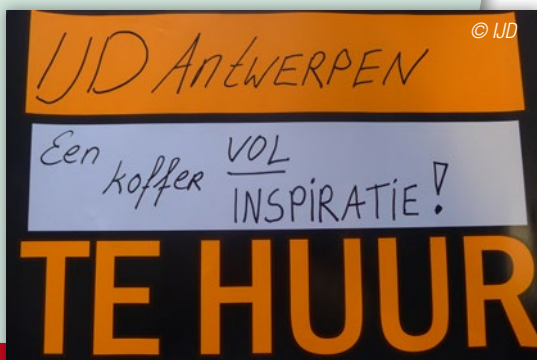 © IJD
IJD ANTWERPEN
Een koffer VOL
INSPIRATIE!
TE HUUR